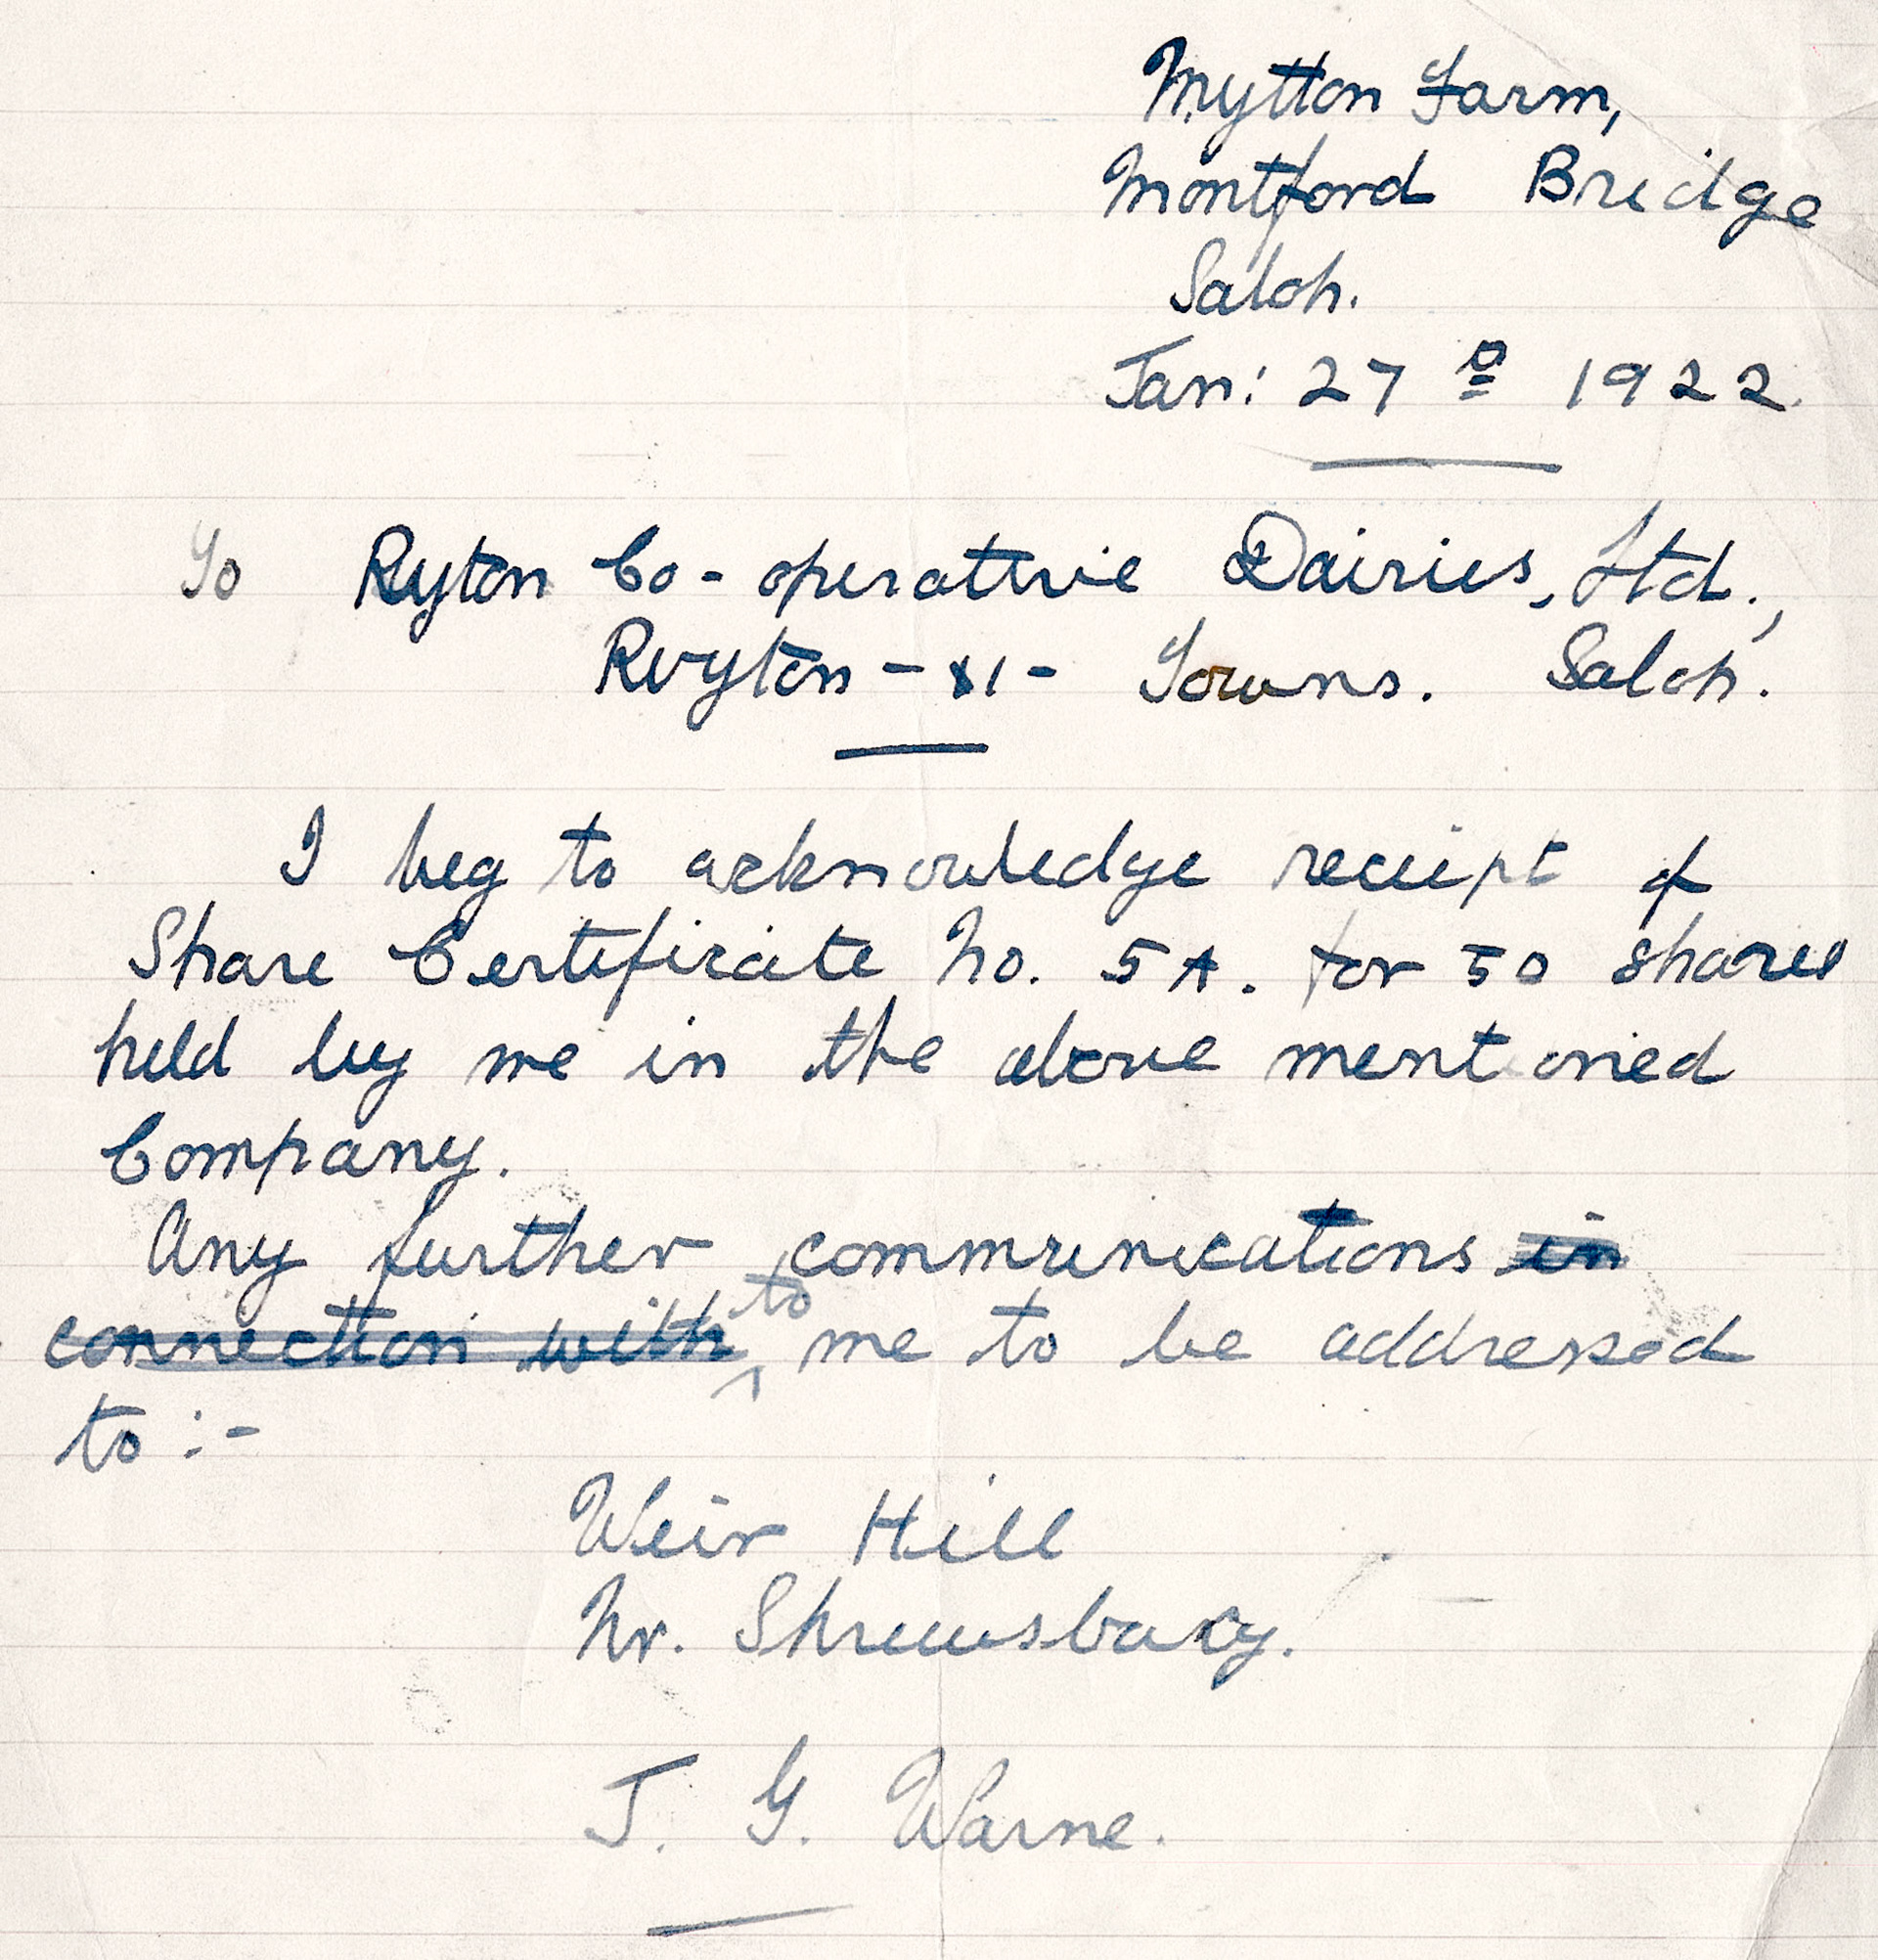 Mytton Farm,
Montford Bridge
Salop.
Jan: 27 º 1922.
To Ryton Co-operative Dairies, Ltd.,
Ruyton - XI - Towns. Salop.
I beg to acknowledge receipt of
Share Certificate No. 5A. for 50 shares
held by me in the above mentioned
Company.
Any further communications in
connection with to me to be addressed
to :-
Weir Hill
Nr. Shrewsbury.
J. G. Warne.